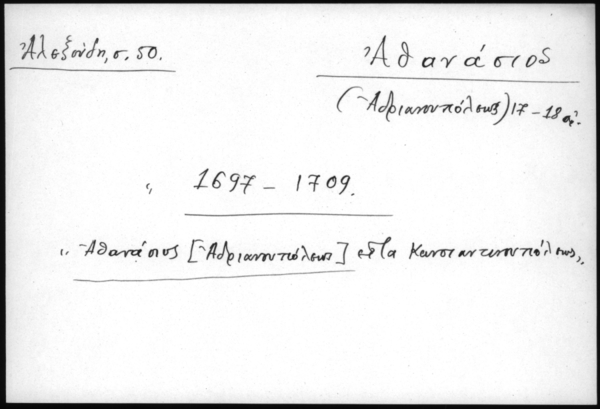 Ἀλεξούδη, σ. 50.
Ἀθανάσιος
(Ἀδριανουπόλεως) 17-18 αἰ.
" 1697 - 1709.
" Ἀθανάσιος [Ἀδριανουπόλεως] εἶτα Κωνσταντινουπόλεως "